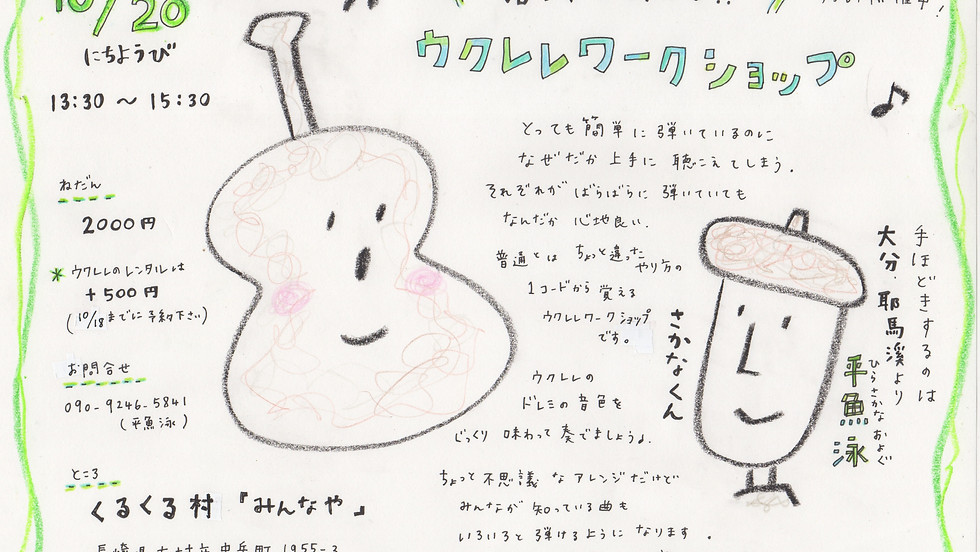 10/20
にちようび
13:30 〜 15:30
ねだん
2000円
* ウクレレのレンタルは
+500円
(10/18までに予約下さい)
お問合せ
090-9246-5841
(平魚泳)
ところ
くるくる村『みんなや』
ウクレレワークショップ
とっても簡単に弾いているのに
なぜだか上手に聴こえてしまう。
それぞれがばらばらに弾いていても
なんだか心地良い。
普通とはちょっと違ったやり方の
1コードから覚える
ウクレレワークショップ
です。
ウクレレの
ドレミの音色を
じっくり味わって奏でましょう♩.
ちょっと不思議なアレンジだけど
みんなが知っている曲も
いろいろと弾けるようになります。
手ほどきするのは
大分、耶馬溪より
平魚泳
ひらさかなおよぐ
さかなくん